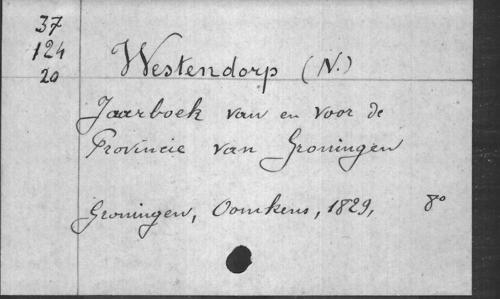 37
124
20
Westendorp (N.)
Jaarboek van en voor de
Provincie van Groningen
Groningen, Oomkens, 1829, 8o